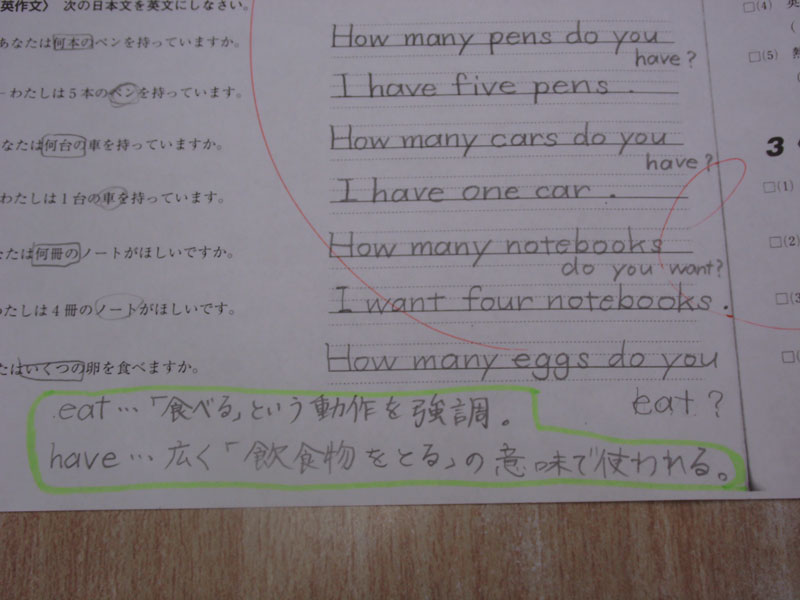 英作文〉 次の日本文を英文にしなさい。
あなたは何本のペンを持っていますか。
How many pens do you
have?
－わたしは5本のペンを持っています。
I have five pens .
なたは何台の車を持っていますか。
How many cars do you
have?
わたしは1台の車を持っています。
I have one car .
なたは何冊のノートがほしいですか。
How many notebooks
do you want?
たしは4冊のノートがほしいです。
I want four notebooks .
たはいくつの卵を食べますか。
How many eggs do you
eat ?
eat…「食べる」という動作を強調。
have…広く「飲食物をとる」の意味で使われる。
□(4)
□(5)
3
□(1)
□(2)
□(3
□(